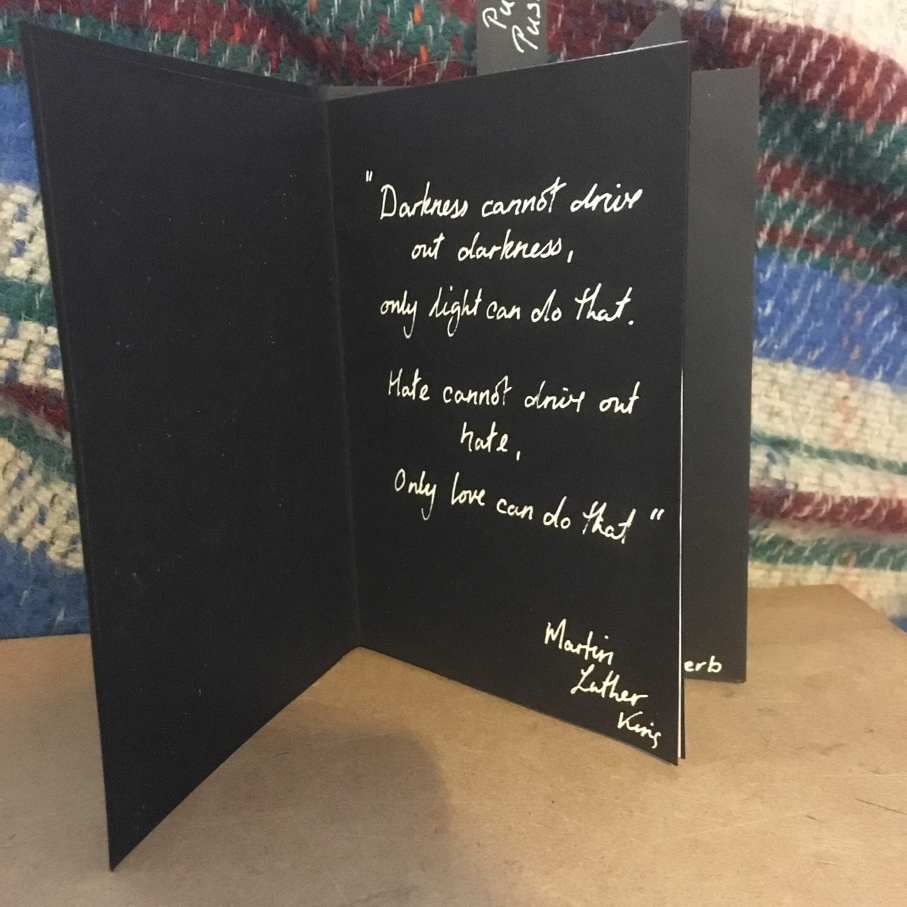 Pu
Pus
"Darkness cannot drive
out darkness,
only light can do that.
Hate cannot drive out
hate,
Only love can do that"
Martin
Luther
King
erb